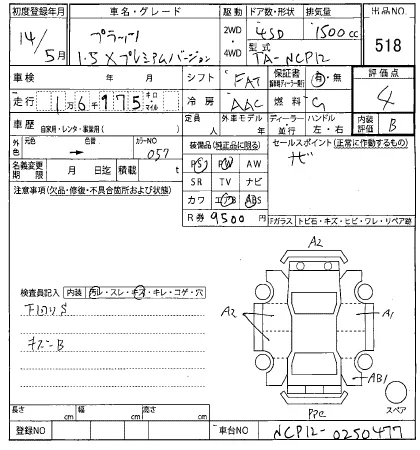 初度登録年月 車名・グレード 駆動 ドア数・形状 排気量 出品NO
14年 5月 プラッツ 1.5 Xプレミアムバージョン 2WD 4WD 4SD 1500cc 518
型式 TA-NCP12
車検 シフト FAT 保証書 有・無 評価点
走行 1万6千975 キロ マイル 冷房 AAC 燃料 G 4
車歴 自家用・レンタ・事業用( ) 定員 人 外車モデル ディーラー 並行 ハンドル 左・右 内装評価 B
外色 元色 色替 カラーNO 057 装備品(純正品に限る) セールスポイント(正常に動作するもの)
名義変更期限 月 日迄 積載 t PS PW AW
注意事項(欠品・修復・不具合箇所および状態) SR TV ナビ
カワ エアB ABS
R券 9500 円 Fガラス トビ石・キズ・ヒビ・ワレ・リペア跡
A2
検査員記入 内装 汚レ・スレ・キズ・キレ・コゲ・穴
下回りS A2 A1
キズーB
AB1
スペア
長さ cm 幅 cm 高さ cm
登録NO 車台NO NCP12-0250477